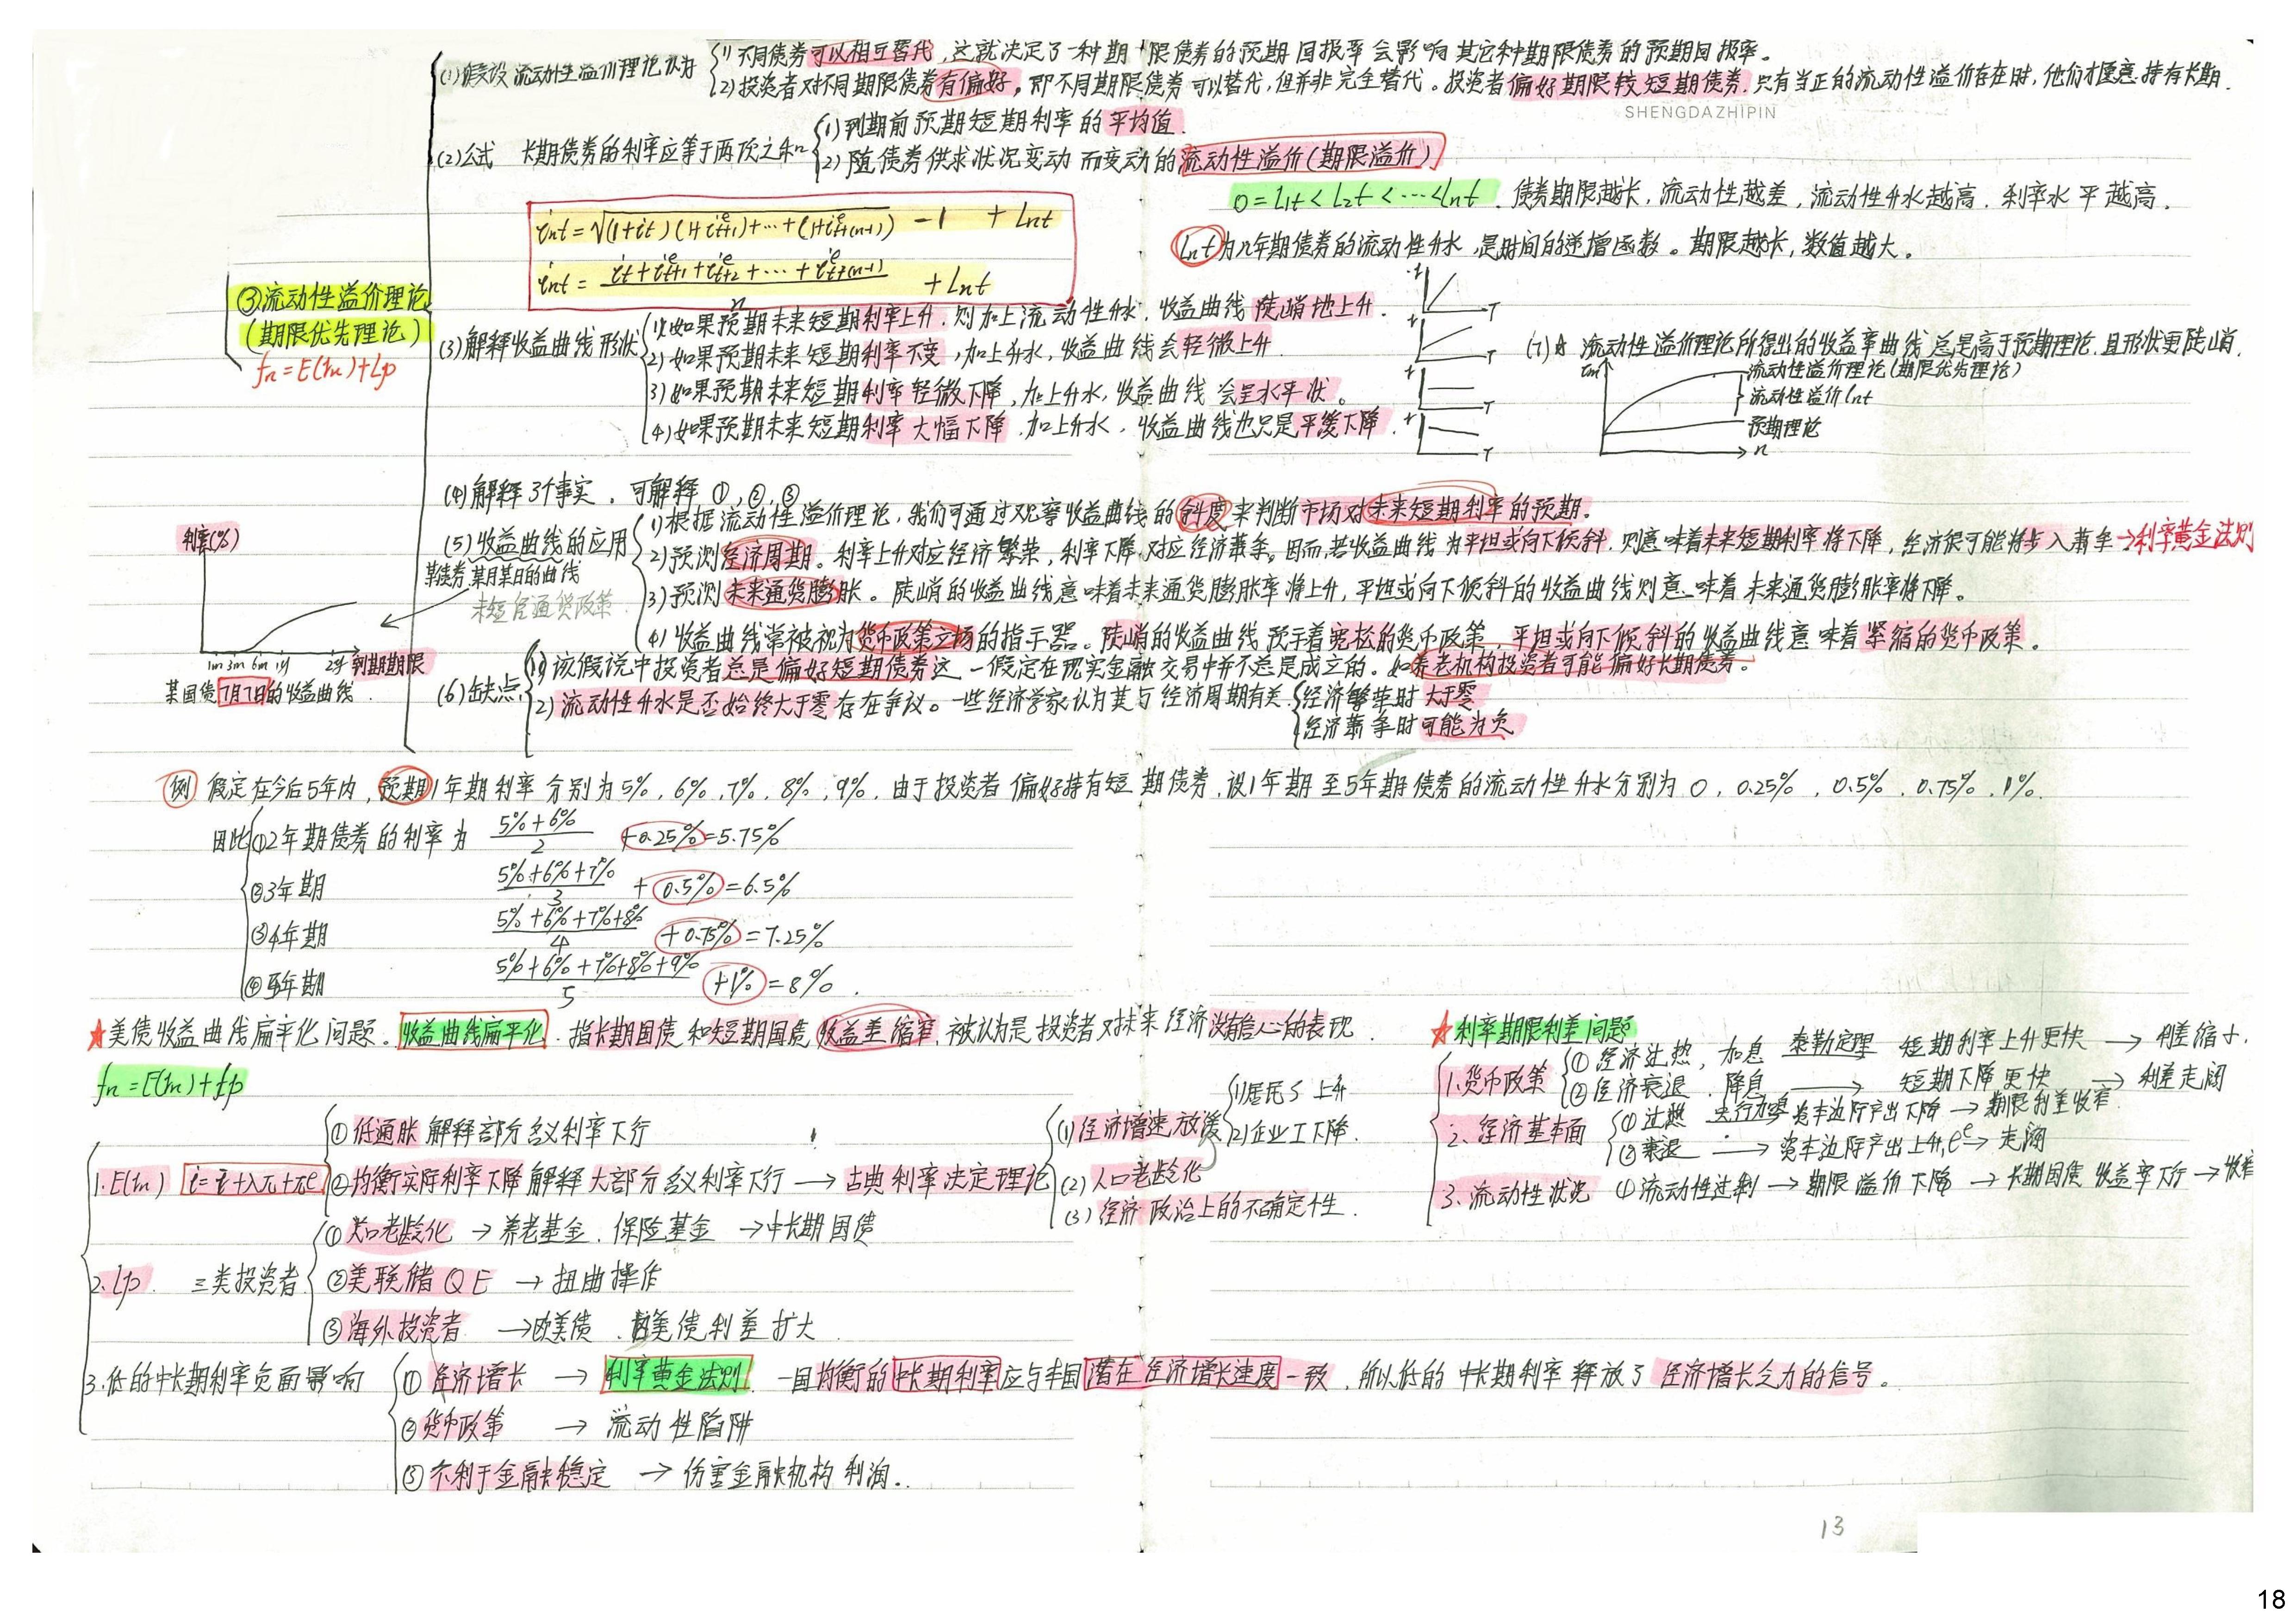 (1)假设 流动性溢价理论认为
1)不同债券可以相互替代，这就决定了一种期限债券的预期回报率会影响其它种期限债券的预期回报率。
2)投资者对不同期限债券有偏好，即不同期限债券可以替代，但并非完全替代。投资者偏好期限较短期债券，只有当正的流动性溢价存在时，他们才愿意持有长期.
SHENGDAZHIPIN
(2)公式 长期债券的利率应等于两项之和
1)到期前预期短期利率的平均值.
2)随债券供求状况变动而变动的流动性溢价(期限溢价)
0=l1t<l2t<…<lnt. 债券期限越长，流动性越差，流动性升水越高，利率水平越高.
int=√(1+it)(1+i^e t+1)+…+(1+i^e t+(n-1)) -1 + lnt
lnt为n年期债券的流动性升水 是时间的递增函数。期限越长，数值越大。
int= (it+i^e t+1+i^e t+2+…+i^e t+(n-1))/n + lnt
③流动性溢价理论
(期限优先理论)
fn=E(rn)+Lp
(3)解释收益曲线形状
1)如果预期未来短期利率上升，则加上流动性升水，收益曲线陡峭地上升.
2)如果预期未来短期利率不变，加上升水，收益曲线会轻微上升.
3)如果预期未来短期利率轻微下降，加上升水，收益曲线会呈水平状。
4)如果预期未来短期利率大幅下降，加上升水，收益曲线也只是平缓下降.
(7) 流动性溢价理论所得出的收益率曲线总是高于预期理论，且形状更陡峭.
流动性溢价理论(期限优先理论)
流动性溢价lnt
预期理论
n
(4)解释3个事实，可解释①,②,③
(5)收益曲线的应用
1)根据流动性溢价理论，我们可通过观察收益曲线的斜度来判断市场对未来短期利率的预期。
2)预测经济周期。利率上升对应经济繁荣，利率下降对应经济萧条。因而，若收益曲线为平坦或向下倾斜，则意味着未来短期利率将下降，经济很可能将步入萧条→利率黄金法则
3)预测未来通货膨胀。陡峭的收益曲线意味着未来通货膨胀率将上升，平坦或向下倾斜的收益曲线则意味着未来通货膨胀率将下降。
4)收益曲线常被视为货币政策立场的指示器。陡峭的收益曲线预示着宽松的货币政策，平坦或向下倾斜的收益曲线意味着紧缩的货币政策。
某债券某月某日的曲线
未短经通货政策
利率(%)
1m 3m 6m 1y 2y 到期期限
某国债7月7日的收益曲线.
(6)缺点
1)该假说中投资者总是偏好短期债券这一假定在现实金融交易中并不总是成立的。如养老机构投资者可能偏好长期债券。
2)流动性升水是否始终大于零存在争议。一些经济学家认为其与经济周期有关
经济繁荣时大于零
经济萧条时可能为负
例 假定在今后5年内，预期1年期利率分别为5%，6%，7%，8%，9%，由于投资者偏好持有短期债券，设1年期至5年期债券的流动性升水分别为0，0.25%，0.5%，0.75%，1%.
因此①2年期债券的利率为 (5%+6%)/2 +0.25%=5.75%
②3年期 (5%+6%+7%)/3 +0.5%=6.5%
③4年期 (5%+6%+7%+8%)/4 +0.75%=7.25%
④5年期 (5%+6%+7%+8%+9%)/5 +1%=8%.
★美债收益曲线扁平化问题。收益曲线扁平化. 指长期国债和短期国债收益差缩窄，被认为是投资者对未来经济没有信心的表现.
fn=E(rn)+Lp
1.E(rn) i=r+λπ+πe
①低通胀解释部分名义利率下行
②均衡实际利率下降解释大部分名义利率下行→古典利率决定理论
(1)经济增速放缓
1)居民S上升
2)企业I下降.
(2)人口老龄化
(3)经济政治上的不确定性.
2.Lp. 三类投资者
①人口老龄化→养老基金、保险基金→中长期国债
②美联储QE→扭曲操作
③海外投资者→欧美债、美债利差扩大.
3.低的中长期利率负面影响
①经济增长→利率黄金法则. 一国均衡的中长期利率应与本国潜在经济增长速度一致，所以低的中长期利率释放了经济增长乏力的信号。
②货币政策→流动性陷阱
③不利于金融稳定→伤害金融机构利润.
★利率期限利差问题
1.货币政策
①经济过热，加息 泰勒定理 短期利率上升更快→利差缩小.
②经济衰退，降息→短期下降更快→利差走阔
2.经济基本面
①过热 资本边际产出下降→期限利差收窄.
②衰退→资本边际产出上升,→走阔
3.流动性状况 ①流动性过剩→期限溢价下降→长期国债收益率下行→收窄
13
18